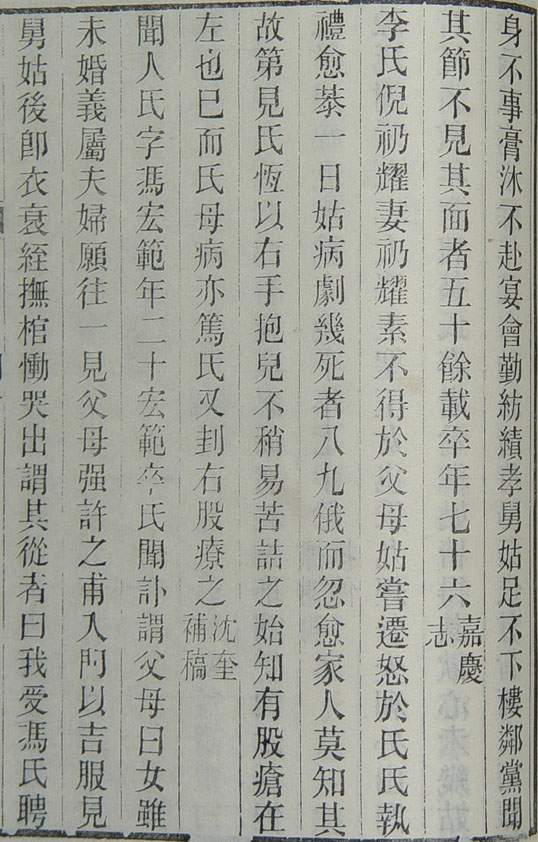 身不事膏沐不赴宴會勤紡績孝舅姑足不下樓鄰黨聞
其節不見其面者五十餘載卒年七十六嘉慶志
李氏倪礽耀妻礽耀素不得於父母姑嘗遷怒於氏氏執
禮愈恭一日姑病劇幾死者八九俄而忽愈家人莫知其
故第見氏恆以右手抱兒不稍易苦詰之始知有股瘡在
左也已而氏母病亦篤氏又刲右股療之沈奎補稿
聞人氏字馮宏範年二十宏範卒氏聞訃謂父母曰女雖
未婚義屬夫婦願往一見父母强許之甫入門以吉服見
舅姑後卽衣衰絰撫棺慟哭出謂其從者曰我受馮氏聘